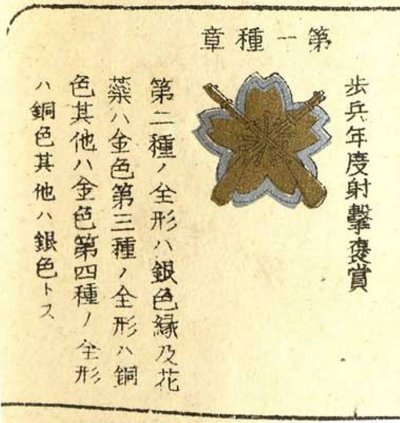 歩兵年度射撃褒賞
第一種章
第二種ノ全形ハ銀色縁及花
蘂ハ金色第三種ノ全形ハ銅
色其他ハ金色第四種ノ全形
ハ銅色其他ハ銀色トス